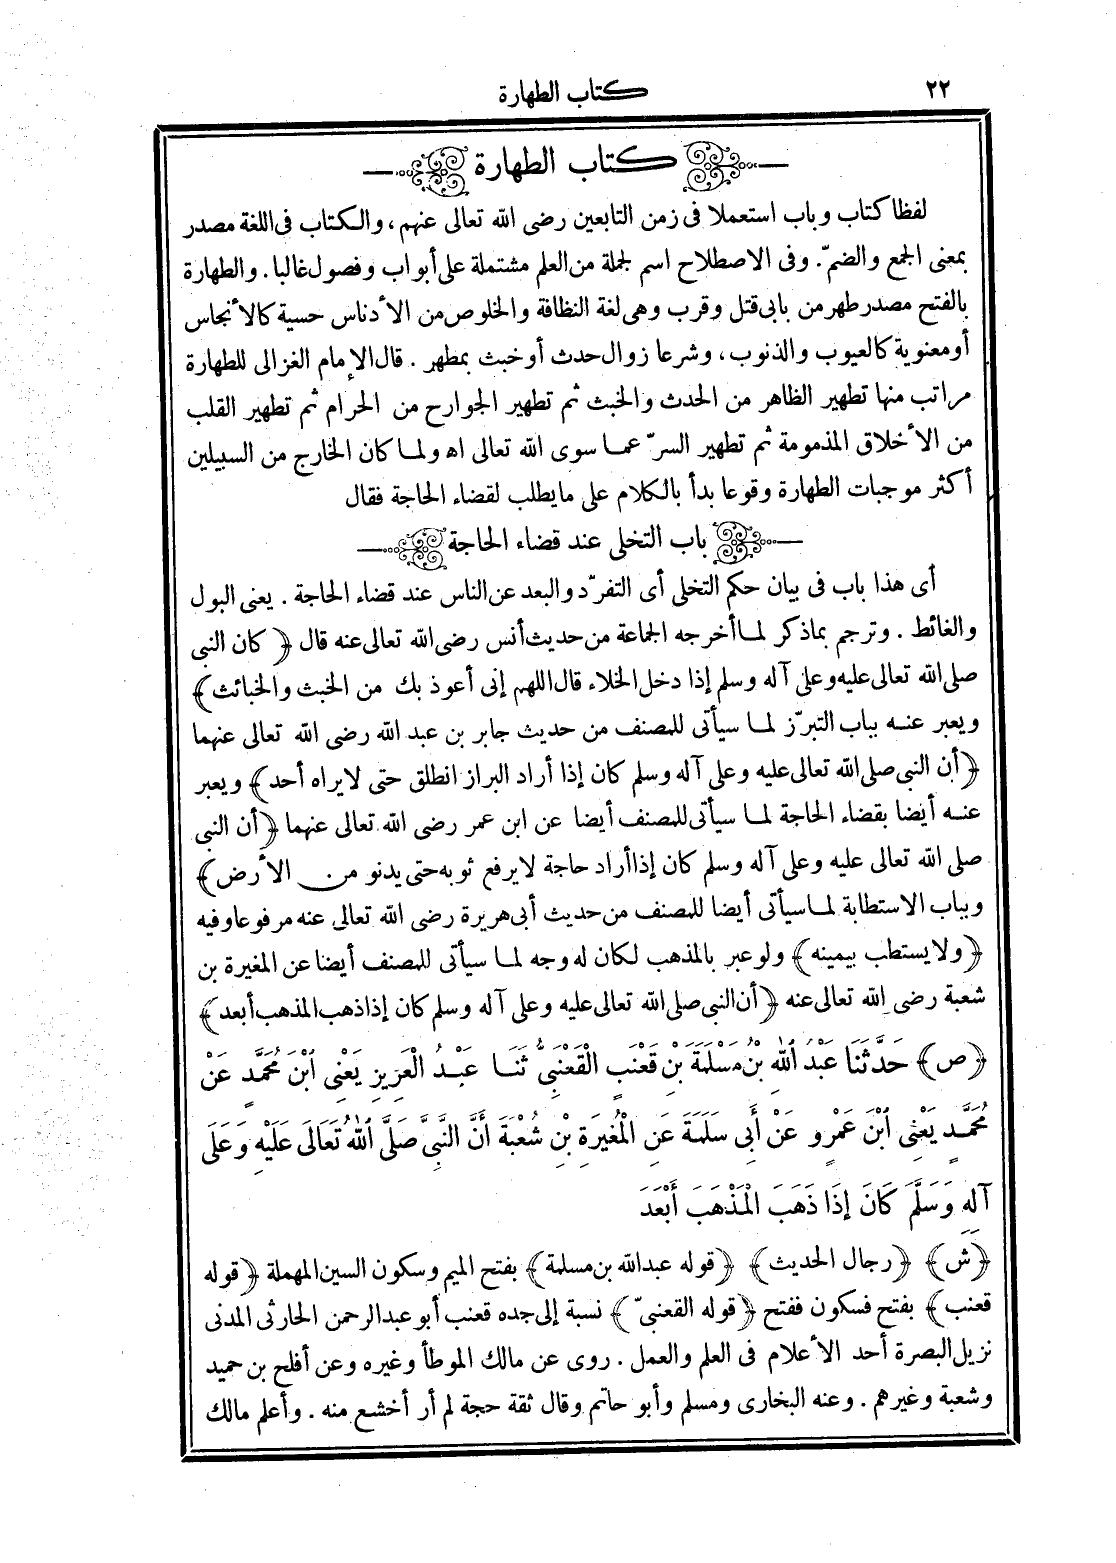 ٢٢
كتاب الطهارة
كتاب الطهارة
لفظا كتاب وباب استعملا فى زمن التابعين رضى الله تعالى عنهم، والكتاب فى اللغة مصدر
بمعنى الجمع والضمّ. وفى الاصطلاح اسم لجملة من العلم مشتملة على أبواب وفصول غالبا. والطهارة
بالفتح مصدر طهر من بابى قتل وقرب وهى لغة النظافة والخلوص من الأدناس حسية كالأنجاس
أو معنوية كالعيوب والذنوب، وشرعا زوال حدث أو خبث بمطهر. قال الإمام الغزالى للطهارة
مراتب منها تطهير الظاهر من الحدث والخبث ثم تطهير الجوارح من الحرام ثم تطهير القلب
من الأخلاق المذمومة ثم تطهير السرّ عما سوى الله تعالى اه ولما كان الخارج من السبيلين
أكثر موجبات الطهارة وقوعا بدأ بالكلام على ما يطلب لقضاء الحاجة فقال
باب التخلى عند قضاء الحاجة
أى هذا باب فى بيان حكم التخلى أى التفرّد والبعد عن الناس عند قضاء الحاجة. يعنى البول
والغائط. وترجم بما ذكر لما أخرجه الجماعة من حديث أنس رضى الله تعالى عنه قال ﴿كان النبى
صلى الله تعالى عليه وعلى آله وسلم إذا دخل الخلاء قال اللهم إنى أعوذ بك من الخبث والخبائث﴾
ويعبر عنه بباب التبرّز لما سيأتى للمصنف من حديث جابر بن عبد الله رضى الله تعالى عنهما
﴿أن النبى صلى الله تعالى عليه وعلى آله وسلم كان إذا أراد البراز انطلق حتى لا يراه أحد﴾ ويعبر
عنه أيضا بقضاء الحاجة لما سيأتى للمصنف أيضا عن ابن عمر رضى الله تعالى عنهما ﴿أن النبى
صلى الله تعالى عليه وعلى آله وسلم كان إذا أراد حاجة لا يرفع ثوبه حتى يدنو من الأرض﴾
وبباب الاستطابة لما سيأتى أيضا للمصنف من حديث أبى هريرة رضى الله تعالى عنه مرفوعا وفيه
﴿ولا يستطب بيمينه﴾ ولو عبر بالمذهب لكان له وجه لما سيأتى للمصنف أيضا عن المغيرة بن
شعبة رضى الله تعالى عنه ﴿أن النبى صلى الله تعالى عليه وعلى آله وسلم كان إذا ذهب المذهب أبعد﴾
﴿ص﴾ حَدَّثَنَا عَبْدُ اللهِ بْنُ مَسْلَمَةَ بْنِ قَعْنَبٍ الْقَعْنَبِىُّ ثَنَا عَبْدُ الْعَزِيزِ يَعْنِى ابْنَ مُحَمَّدٍ عَنْ
مُحَمَّدٍ يَعْنِى ابْنَ عَمْرٍو عَنْ أَبِى سَلَمَةَ عَنِ الْمُغِيرَةِ بْنِ شُعْبَةَ أَنَّ النَّبِىَّ صَلَّى اللهُ تَعَالَى عَلَيْهِ وَعَلَى
آلِهِ وَسَلَّمَ كَانَ إِذَا ذَهَبَ الْمَذْهَبَ أَبْعَدَ
﴿ش﴾ ﴿رجال الحديث﴾ ﴿قوله عبد الله بن مسلمة﴾ بفتح الميم وسكون السين المهملة ﴿قوله
قعنب﴾ بفتح فسكون ففتح ﴿قوله القعنبىّ﴾ نسبة إلى جده قعنب أبو عبد الرحمن الحارثى المدنى
نزيل البصرة أحد الأعلام فى العلم والعمل. روى عن مالك الموطأ وغيره وعن أفلح بن حميد
وشعبة وغيرهم. وعنه البخارى ومسلم وأبو حاتم وقال ثقة حجة لم أر أخشع منه. وأعلم مالك